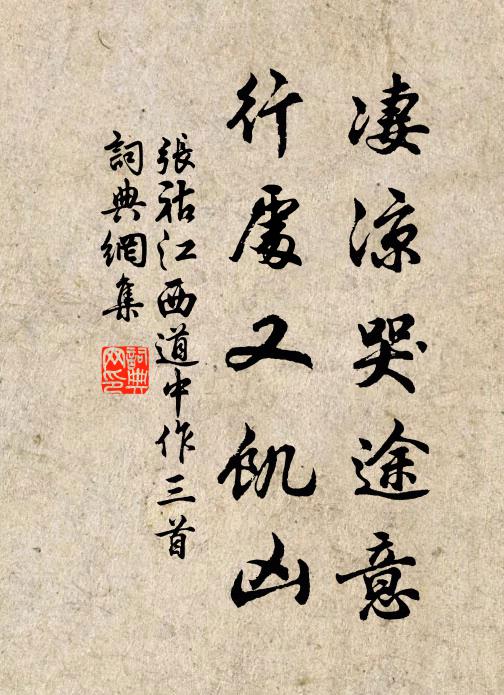 凄凉哭途意
行處又飢凶
張祜江西道中作三首
詞典網集
詞典網印